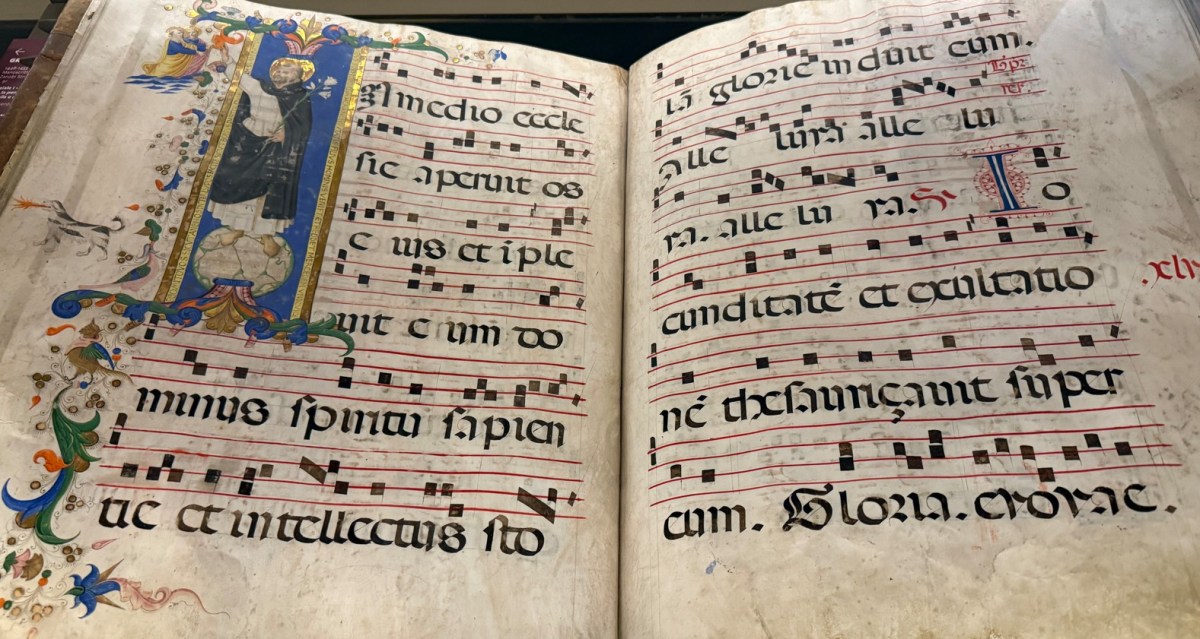 n medio eccle
sie aperuit os
e ius et iple
uit e um do
minus spiritu sapien
tie et intellectus sto
lā glorie induit eum.
Alle luia alle lu
ia. alle lu ya. Io
cunditatē et exultatio
nē thesauriçavit super
eum. Gloria. evovae.